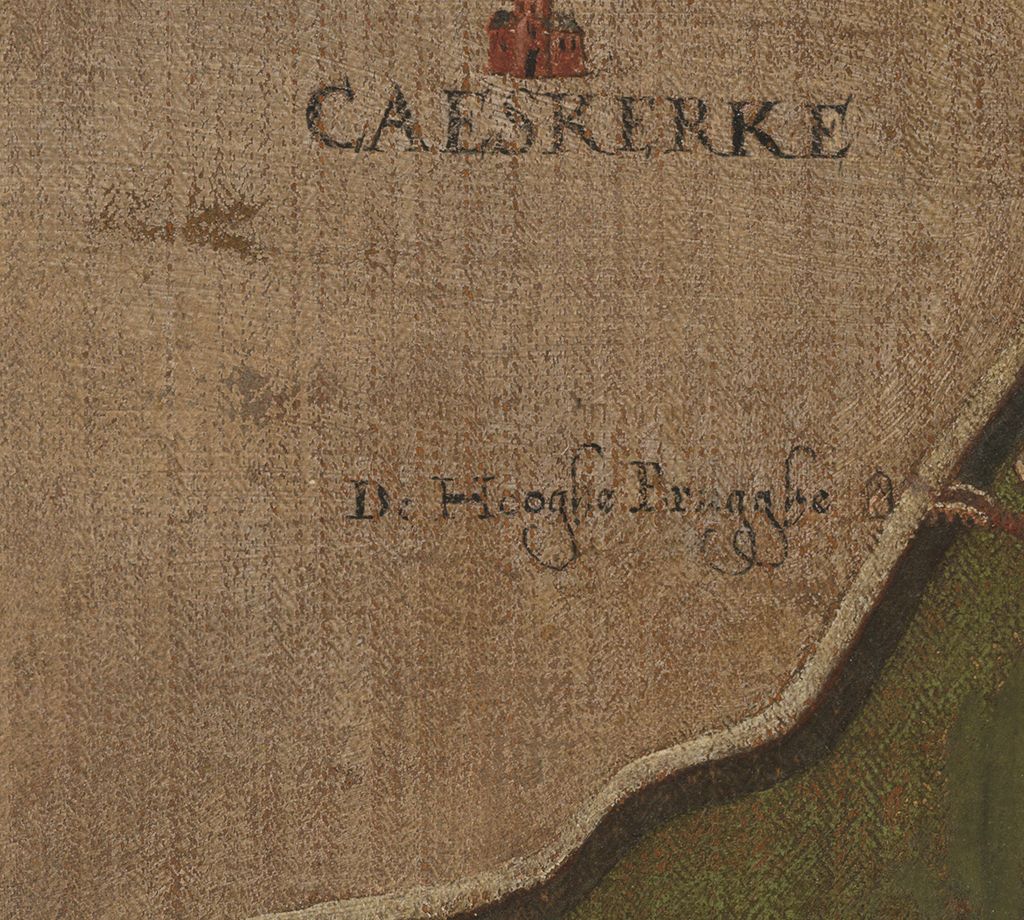 CAESKERKE
De Hooghe Brugghe